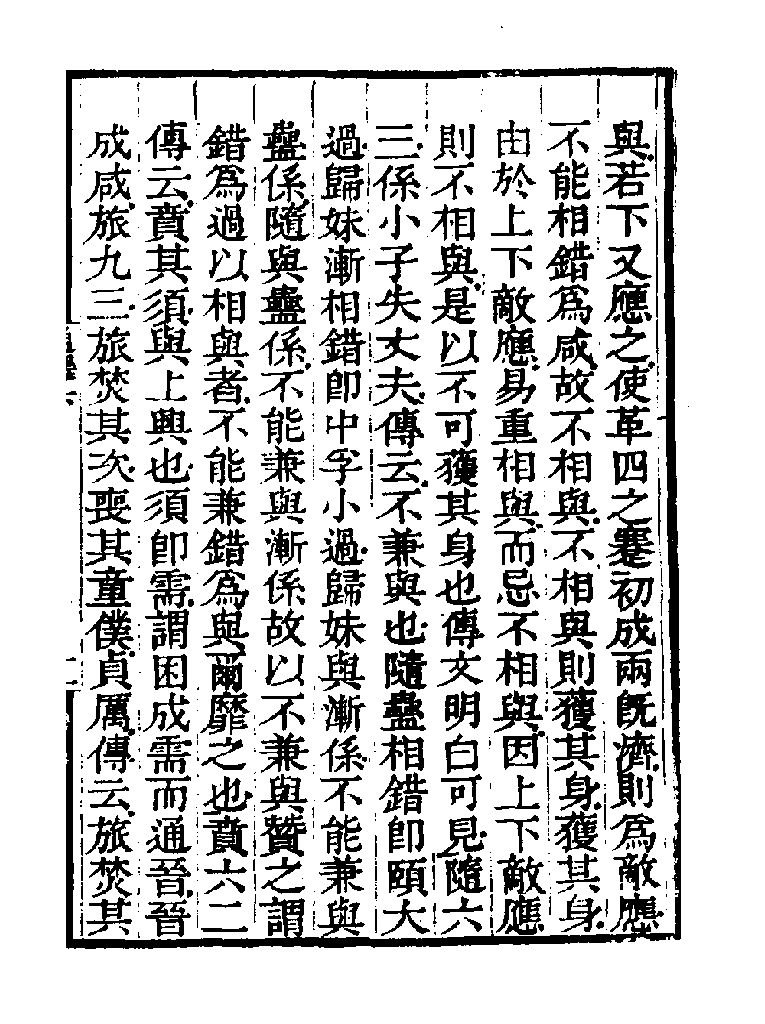 與若下又應之使革四之蹇初成兩旣濟則爲敵應
不能相錯爲咸故不相與不相與則獲其身獲其身
由於上下敵應易重相與而忌不相與因上下敵應
則不相與是以不可獲其身也傳文明白可見隨六
三係小子失丈夫傳云不兼與也隨蠱相錯卽頤大
過歸妹漸相錯卽中孚小過歸妹與漸係不能兼與
蠱係隨與蠱係不能兼與漸係故以不兼與贊之謂
錯爲過以相與者不能兼錯爲與爾靡之也賁六二
傳云賁其須與上興也須卽需謂困成需而通晉晉
成咸旅九三旅焚其次喪其童僕貞厲傳云旅焚其